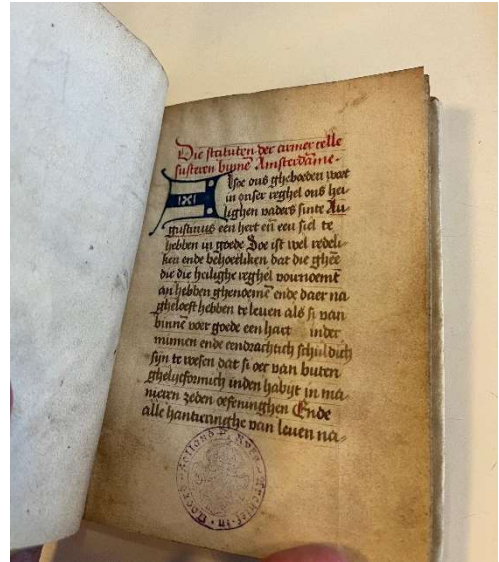 Die statuten der armer celle
susteren binnē Amsterdāme.
Alsoe ons gheboeden wort
in onser reghel ons hei-
lighen vaders sinte Au
gustinus een hert eñ een siel te
hebben in goede Soe ist wel redeli-
ken ende behoerliken dat die ghēe
die die heilighe reghel vournoemt
an hebben ghenoemē ende daer na
gheloeft hebben te leuen als si van
binnē voer goede een hart inder
minnen ende eendrachtich schuldich
sijn te wesen dat si oec van buten
ghelijcformich inden habijt in ma-
nieren zeden oefeninghen Ende
alle hantieringhe van leuen na-